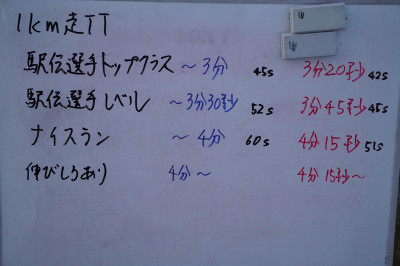 1km走TT
駅伝選手トップクラス ~3分 45s 3分20秒 42s
駅伝選手レベル ~3分30秒 52s 3分45秒 45s
ナイスラン ~4分 60s 4分15秒 51s
伸びしろあり 4分~ 4分15秒~